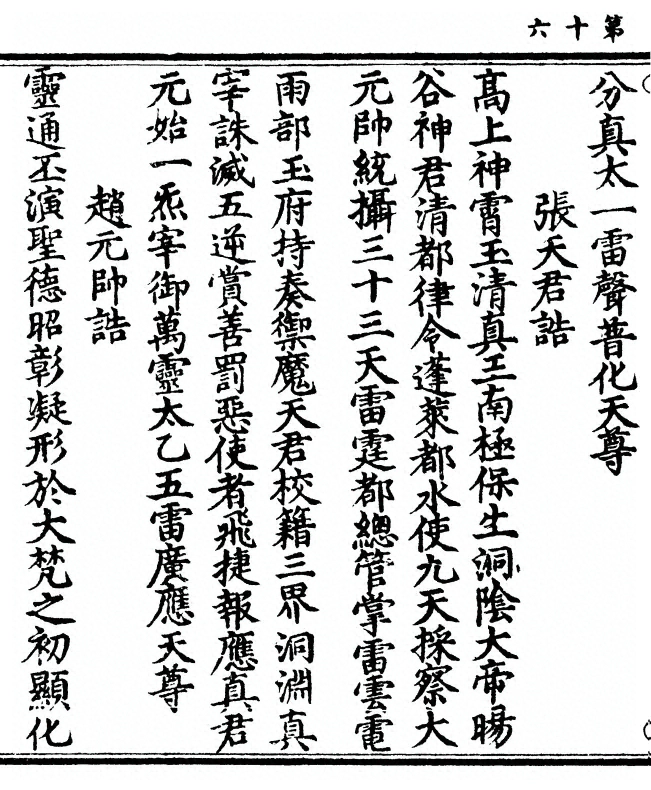 第十六
分真太一雷聲普化天尊
張天君誥
高上神霄玉清真王南極保生洞陰大帝暘
谷神君清都律令蓬萊都水使九天採察大
元帥統攝三十三天雷霆都總管掌雷雲電
雨部玉府持奏禦魔天君校籍三界洞淵真
宰誅滅五逆賞善罰惡使者飛捷報應真君
元始一炁宰御萬靈太乙五雷廣應天尊
趙元帥誥
靈通丕演聖德昭彰凝形於大梵之初顯化